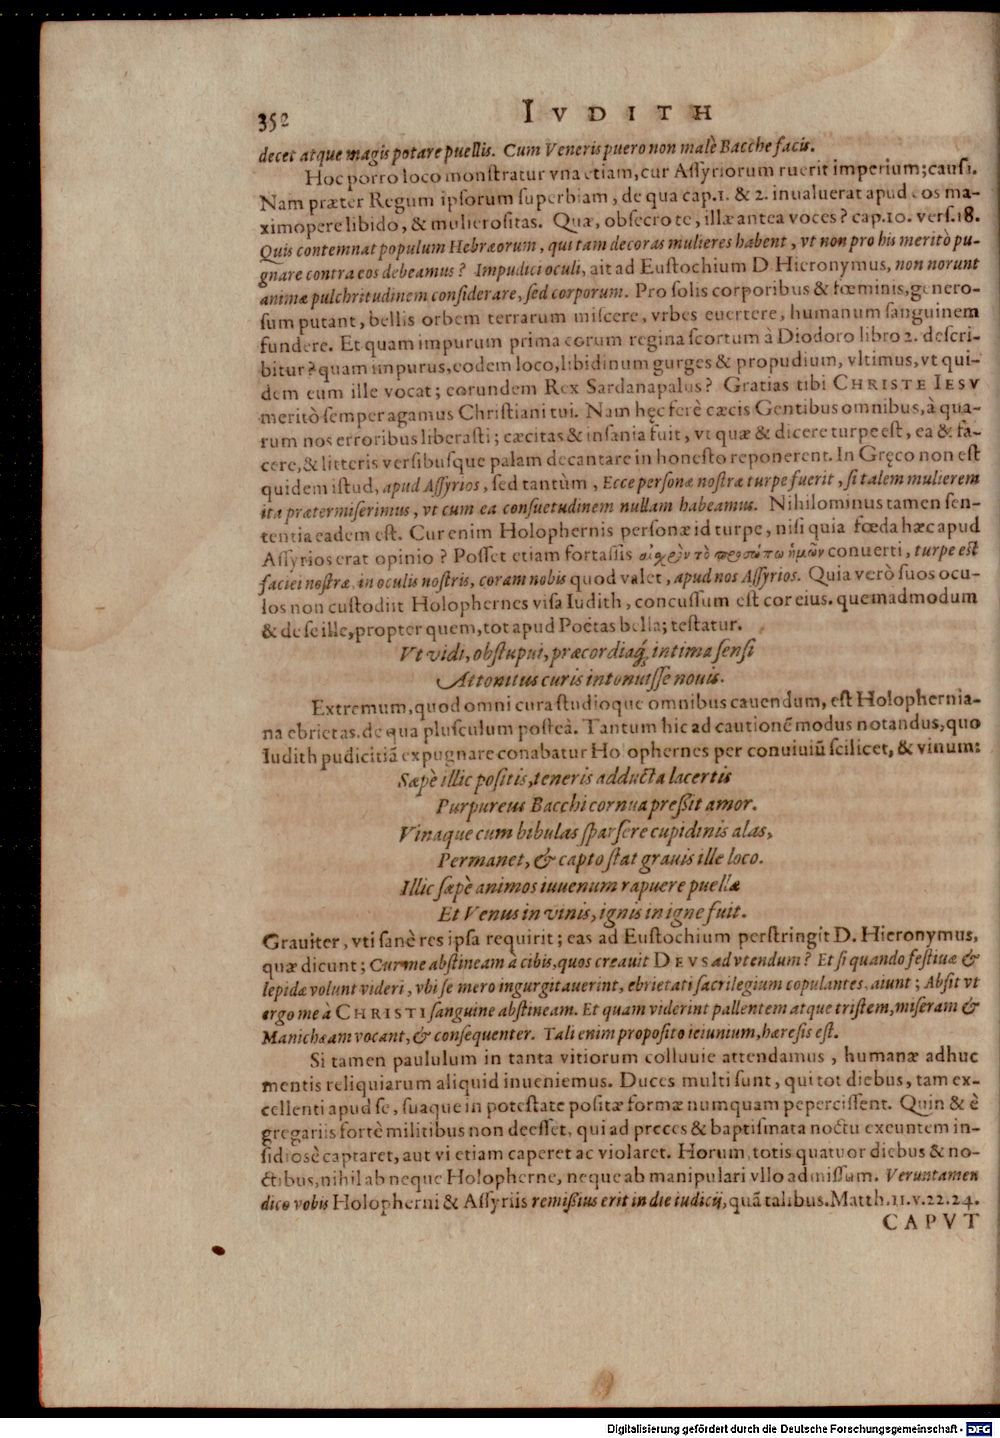 352 IVDITH
decet atque magis potare puellis. Cum Veneris puero non malè Bacche facis.
Hoc porro loco monſtratur vna etiam, cur Aſſyriorum ruerit imperium; cauſſ.
Nam præter Regum ipſorum ſuperbiam, de qua cap.1. & 2. inualuerat apud eos ma-
ximopere libido, & mulieroſitas. Quæ, obſecro te, illæ antea voces? cap.10. verſ.18.
Quis contemnat populum Hebræorum, qui tam decoras mulieres habent, vt non pro his meritò pu-
gnare contra eos debeamus? Impudici oculi, ait ad Euſtochium D. Hieronymus, non norunt
animæ pulchritudinem conſiderare, ſed corporum. Pro ſolis corporibus & fœminis, genero-
ſum putant, bellis orbem terrarum miſcere, vrbes euertere, humanum ſanguinem
fundere. Et quam impurum prima eorum regina ſcortum à Diodoro libro 2. deſcri-
bitur? quam impurus, eodem loco, libidinum gurges & propudium, vltimus, vt qui-
dem eum ille vocat; eorundem Rex Sardanapalus? Gratias tibi CHRISTE IESV
meritò ſemper agamus Chriſtiani tui. Nam hęc ferè cæcis Gentibus omnibus, à qua-
rum nos erroribus liberaſti; cæcitas & inſania fuit, vt quæ & dicere turpe eſt, ea & fa-
cere, & litteris verſibuſque palam decantare in honeſto reponerent. In Gręco non eſt
quidem iſtud, apud Aſſyrios, ſed tantùm, Ecce perſonæ noſtræ turpe fuerit, ſi talem mulierem
ita prætermiſerimus, vt cum ea conſuetudinem nullam habeamus. Nihilominus tamen ſen-
tentia eadem eſt. Cur enim Holophernis perſonæ id turpe, niſi quia fœda hæc apud
Aſſyrios erat opinio? Poſſet etiam fortaſſis αἰσχρὸν τὸ προσώπω ἡμῶν conuerti, turpe eſt
faciei noſtræ, in oculis noſtris, coram nobis quod valet, apud nos Aſſyrios. Quia verò ſuos ocu-
los non cuſtodiit Holophernes viſa Iudith, concuſſum eſt cor eius. quemadmodum
& de ſe ille, propter quem, tot apud Poëtas bella; teſtatur.
Vt vidi, obſtupui, præcordiaq́; intima ſenſi
Attonitus curis intonuiſſe nouis.
Extremum, quod omni cura ſtudioque omnibus cauendum, eſt Holophernia-
na ebrietas. de qua pluſculum poſteà. Tantum hic ad cautionẽ modus notandus, quo
Iudith pudicitiã expugnare conabatur Holophernes per conuiuiũ ſcilicet, & vinum:
Sæpè illic poſitis, teneris adducta lacertis
Purpureus Bacchi cornua preßit amor.
Vinaque cum bibulas ſparſere cupidinis alas,
Permanet, & capto ſtat grauis ille loco.
Illic ſæpè animos iuuenum rapuere puellæ
Et Venus in vinis, ignis in igne fuit.
Grauiter, vti ſanè res ipſa requirit; eas ad Euſtochium perſtringit D. Hieronymus,
quæ dicunt; Cur me abſtineam à cibis, quos creauit DEVS ad vtendum? Et ſi quando feſtiuæ &
lepidæ volunt videri, vbi ſe mero ingurgitauerint, ebrietati ſacrilegium copulantes, aiunt; Abſit vt
ergo me à CHRISTI ſanguine abſtineam. Et quam viderint pallentem atque triſtem, miſeram &
Manichæam vocant, & conſequenter. Tali enim propoſito ieiunium, hæreſis eſt.
Si tamen paululum in tanta vitiorum colluuie attendamus, humanæ adhuc
mentis reliquiarum aliquid inueniemus. Duces multi ſunt, qui tot diebus, tam ex-
cellenti apud ſe, ſuaque in poteſtate poſitæ formæ numquam peperciſſent. Quin & è
gregariis fortè militibus non deeſſet, qui ad preces & baptiſmata noctu exeuntem in-
ſidiosè captaret, aut vi etiam caperet ac violaret. Horum, totis quatuor diebus & no-
ctibus, nihil ab neque Holopherne, neque ab manipulari vllo admiſſum. Veruntamen
dico vobis Holopherni & Aſſyriis remißius erit in die iudicij, quã talibus. Matth.11.v.22.24.
CAPVT
Digitalisierung gefördert durch die Deutsche Forschungsgemeinschaft - DFG